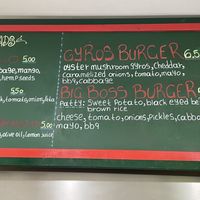 5.00
bage, mango,
hemp seeds
5.50
k, tomato, onion, feta
5.00
olive oil, lemon juice
GYROS BURGER 6.5
oyster mushroom gyros, cheddar,
caramelized onions, tomato, mayo,
bbq, cabbage
BIG BOSS BURGER
patty: sweet potato, black eyed be
brown rice
cheese, tomato, onions, pickles, cabba
mayo, bbq